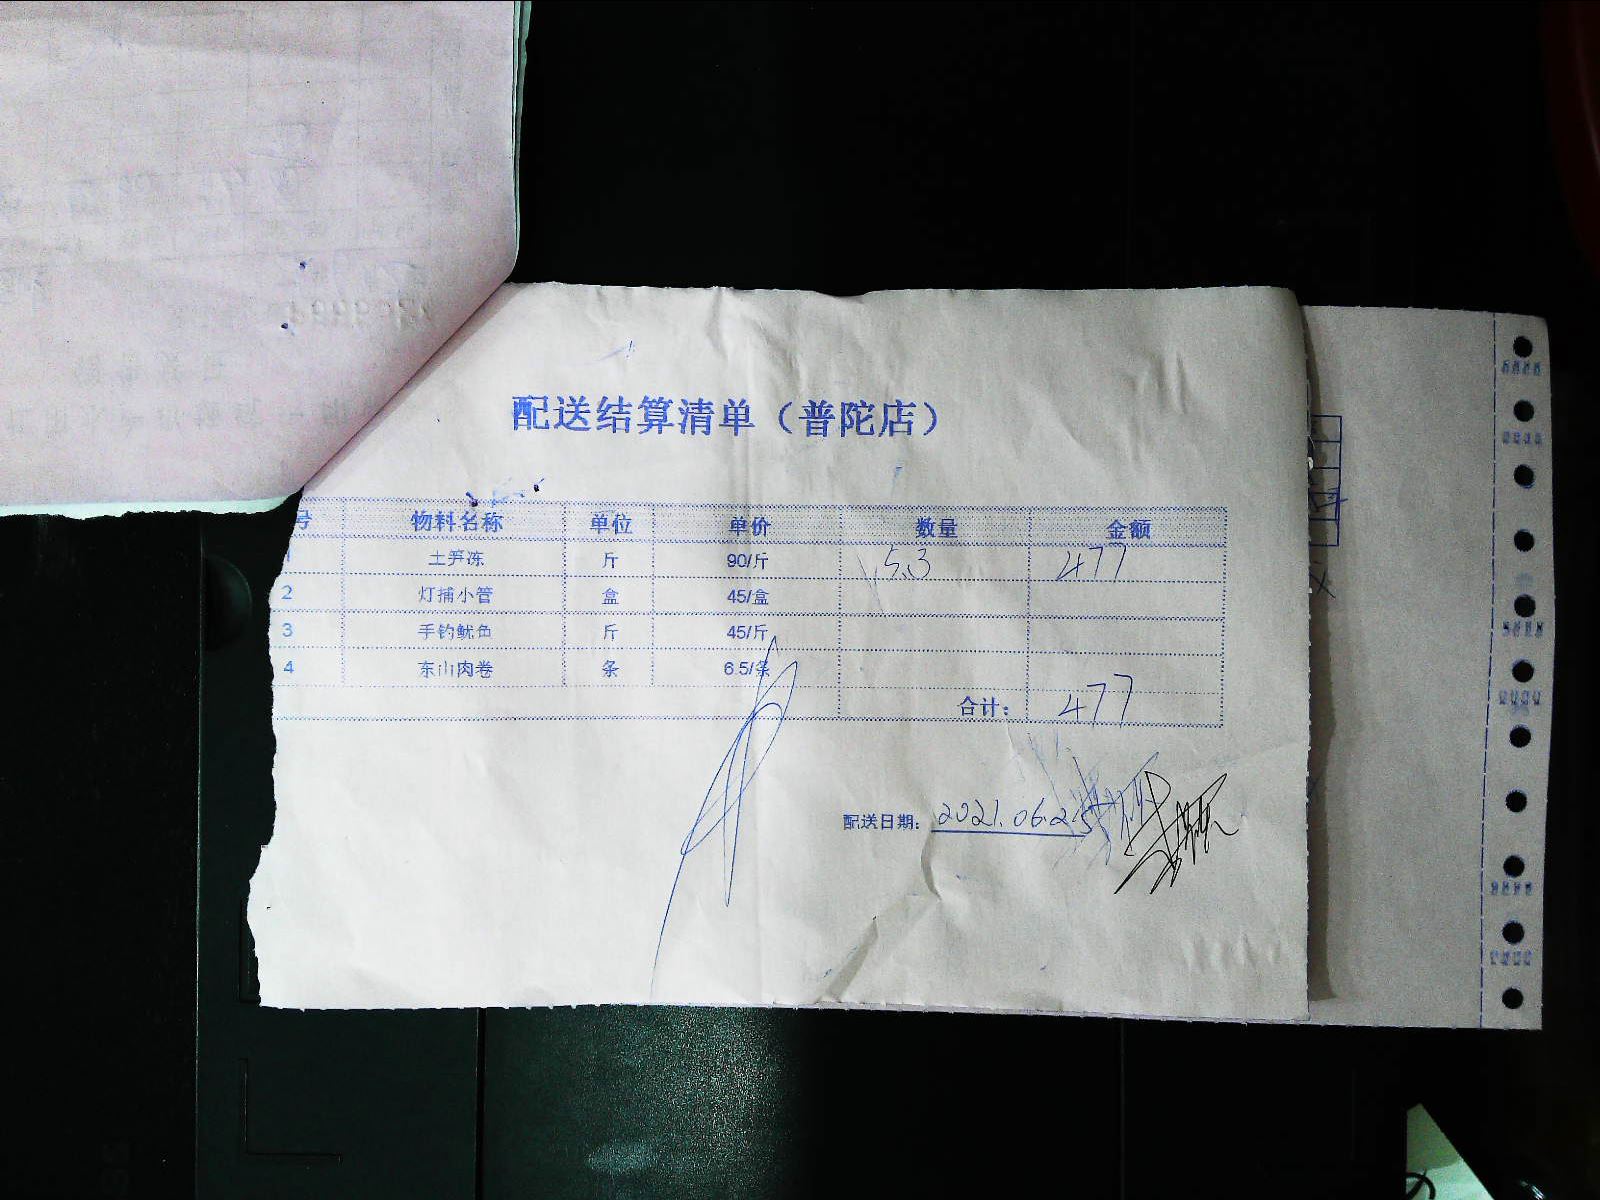 配送结算清单（普陀店）
号 物料名称 单位 单价 数量 金额
1 土笋冻 斤 90/斤 5.3 477
2 灯捕小管 盒 45/盒
3 手钓鱿鱼 斤 45/斤
4 东山肉卷 条 6.5/条
合计： 477
配送日期： 2021.06.25